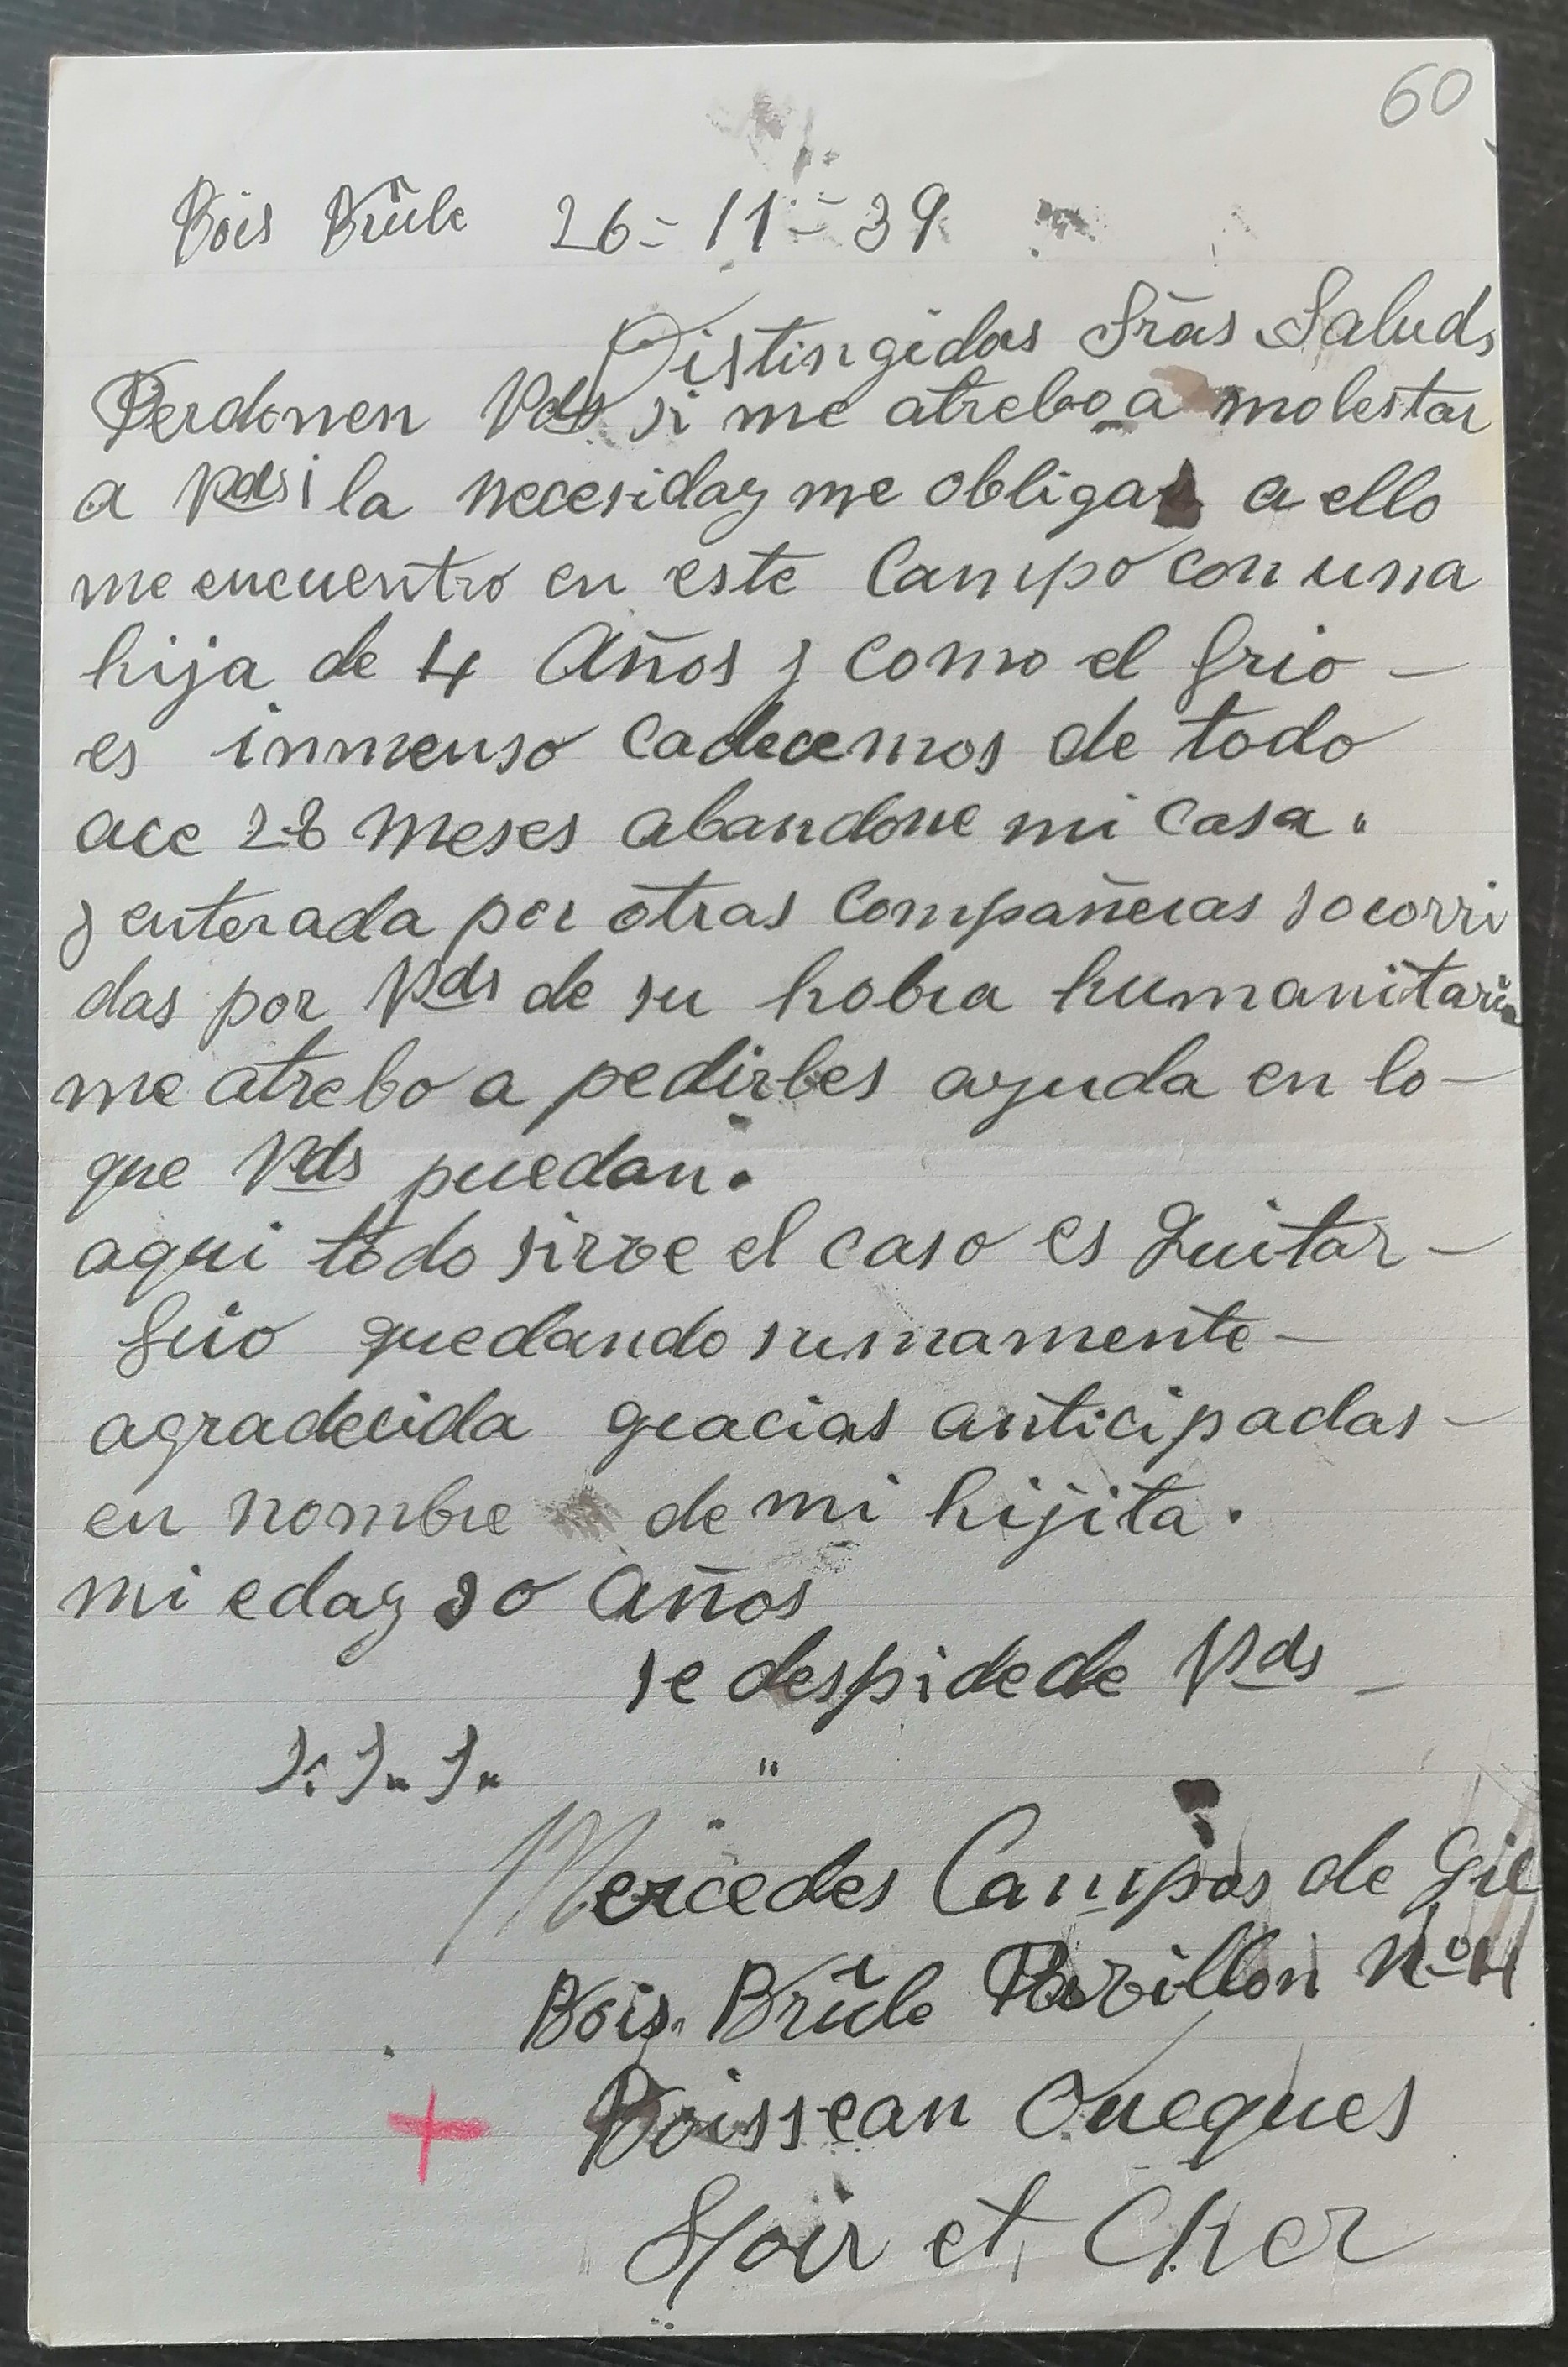 60
Bois Brûle 26-11-39
Distingidas Sras Salud,
Perdonen Vds si me atrebo a molestar
a Vds i la necesidaz me obliga a ello
me encuentro en este Campo con una
hija de 4 Años y como el frio -
es inmenso cadecemos de todo
ace 28 meses abandone mi casa.
y enterada por otras Compañeras socorri
das por Vds de su hobra humanitaria
me atrebo a pedirles ayuda en lo -
que Vds puedan.
aqui todo sirve el caso es Quitar -
frio quedando sumamente -
agradecida gracias anticipadas -
en nombre de mi hijita.
mi edaz 30 Años
se despide de Vds -
s. s. s. "
Mercedes Campos de Gil
Bois. Brûle Pavillon Nº 4
Boissean Oucques
Loir et Cher